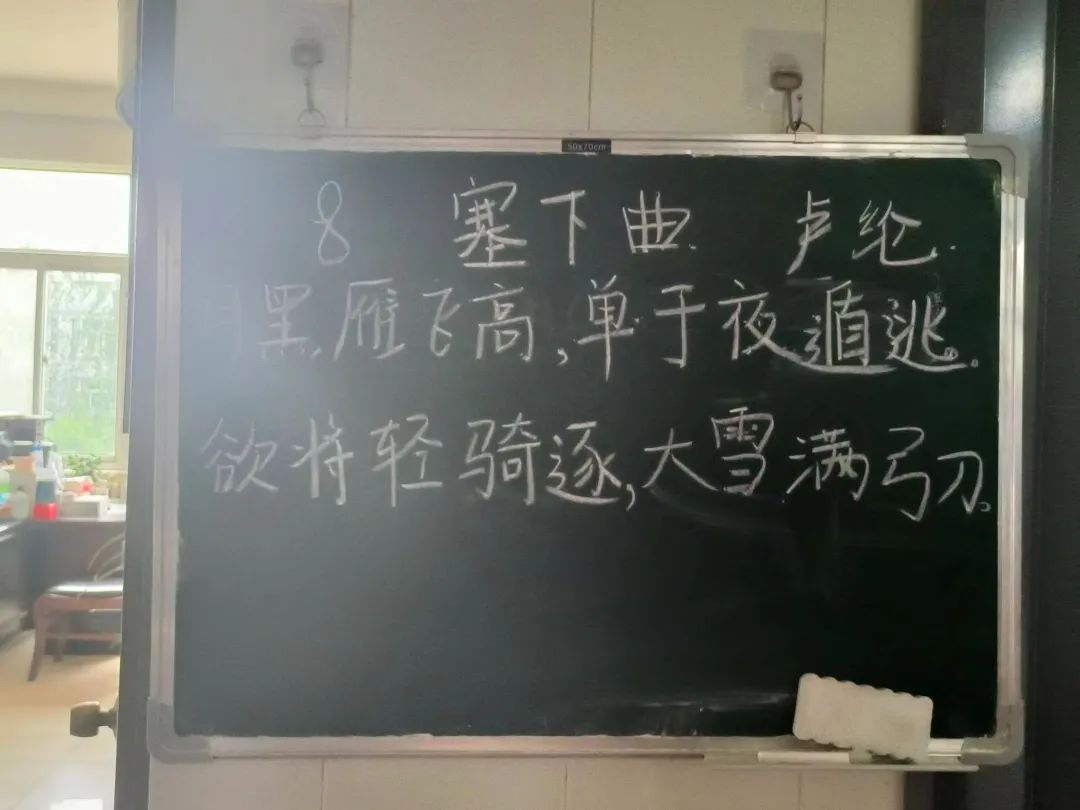 50x70cm
8 塞下曲. 卢纶.
月黑雁飞高,单于夜遁逃。
欲将轻骑逐,大雪满弓刀。